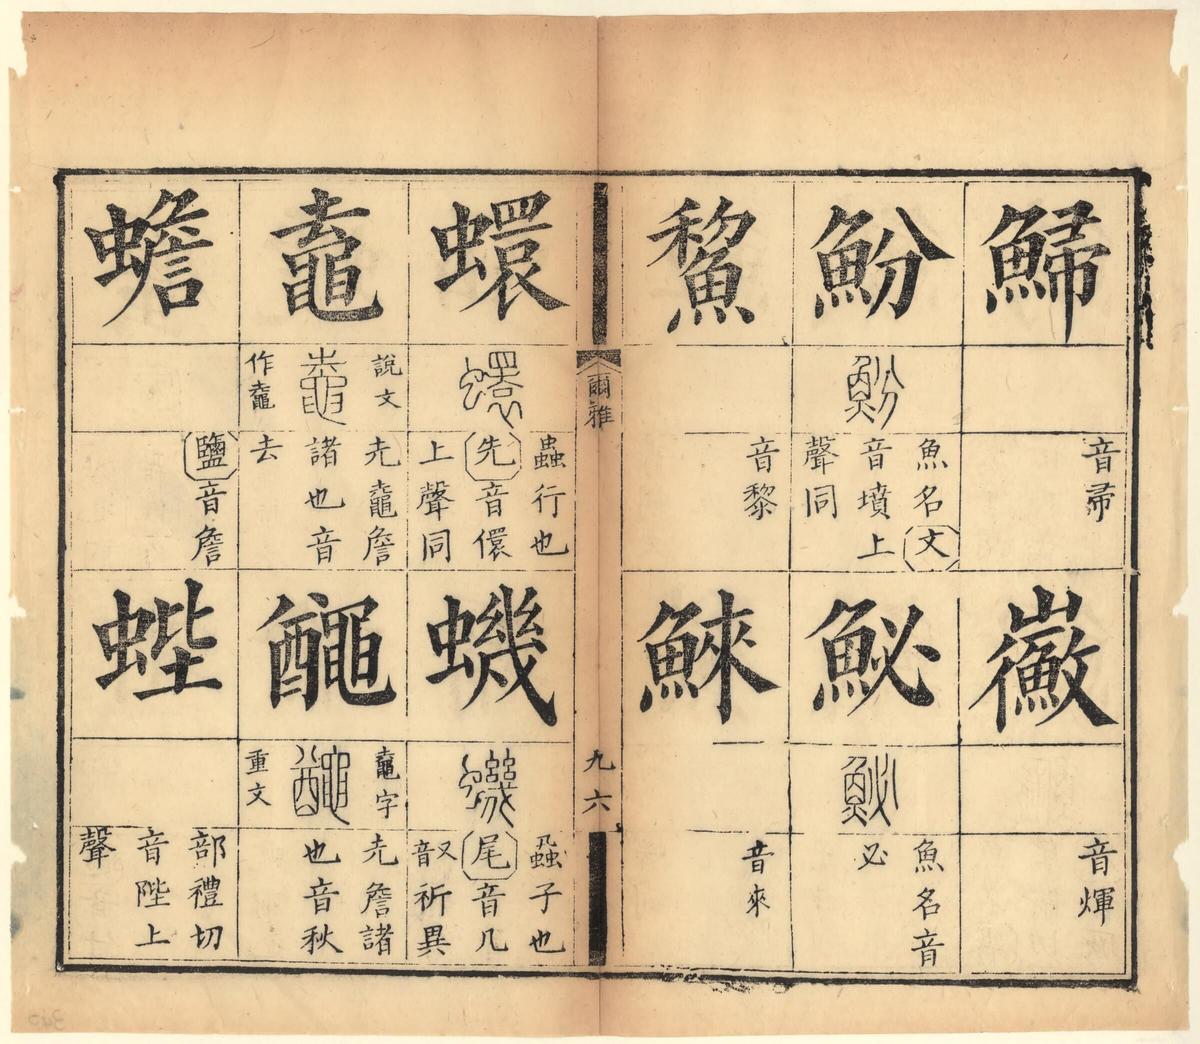 鯞
音帚
鰴
音煇
魵
魵
魚名文
音墳上
聲同
鮅
鮅
魚名音
必
鯬
音黎
鯠
音來
爾雅
九六
蠉
蠉
蟲行也
先音儇
上聲同
蟣
蟣
蝨子也
尾音几
又音祈異
鼁
說文
鼀
作鼀
圥鼀詹
諸也音
去
𪓰
鼀字
𪓰
重文
圥詹諸
也音秋
蟾
鹽音詹
蜌
部禮切
音陛上
聲